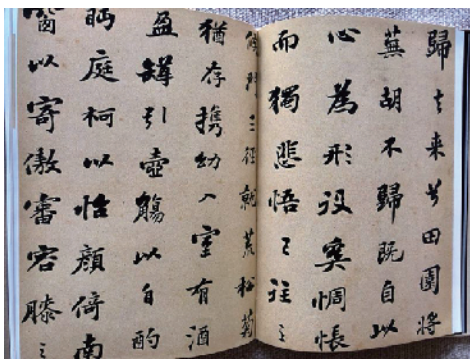 歸去来兮田園將
蕪胡不歸既自以
心為形役奚惆悵
而獨悲悟已往之
門三徑就荒松菊
猶存携幼入室有酒
盈罇引壺觴以自酌
眄庭柯以怡顏倚南
窗以寄傲審容膝之